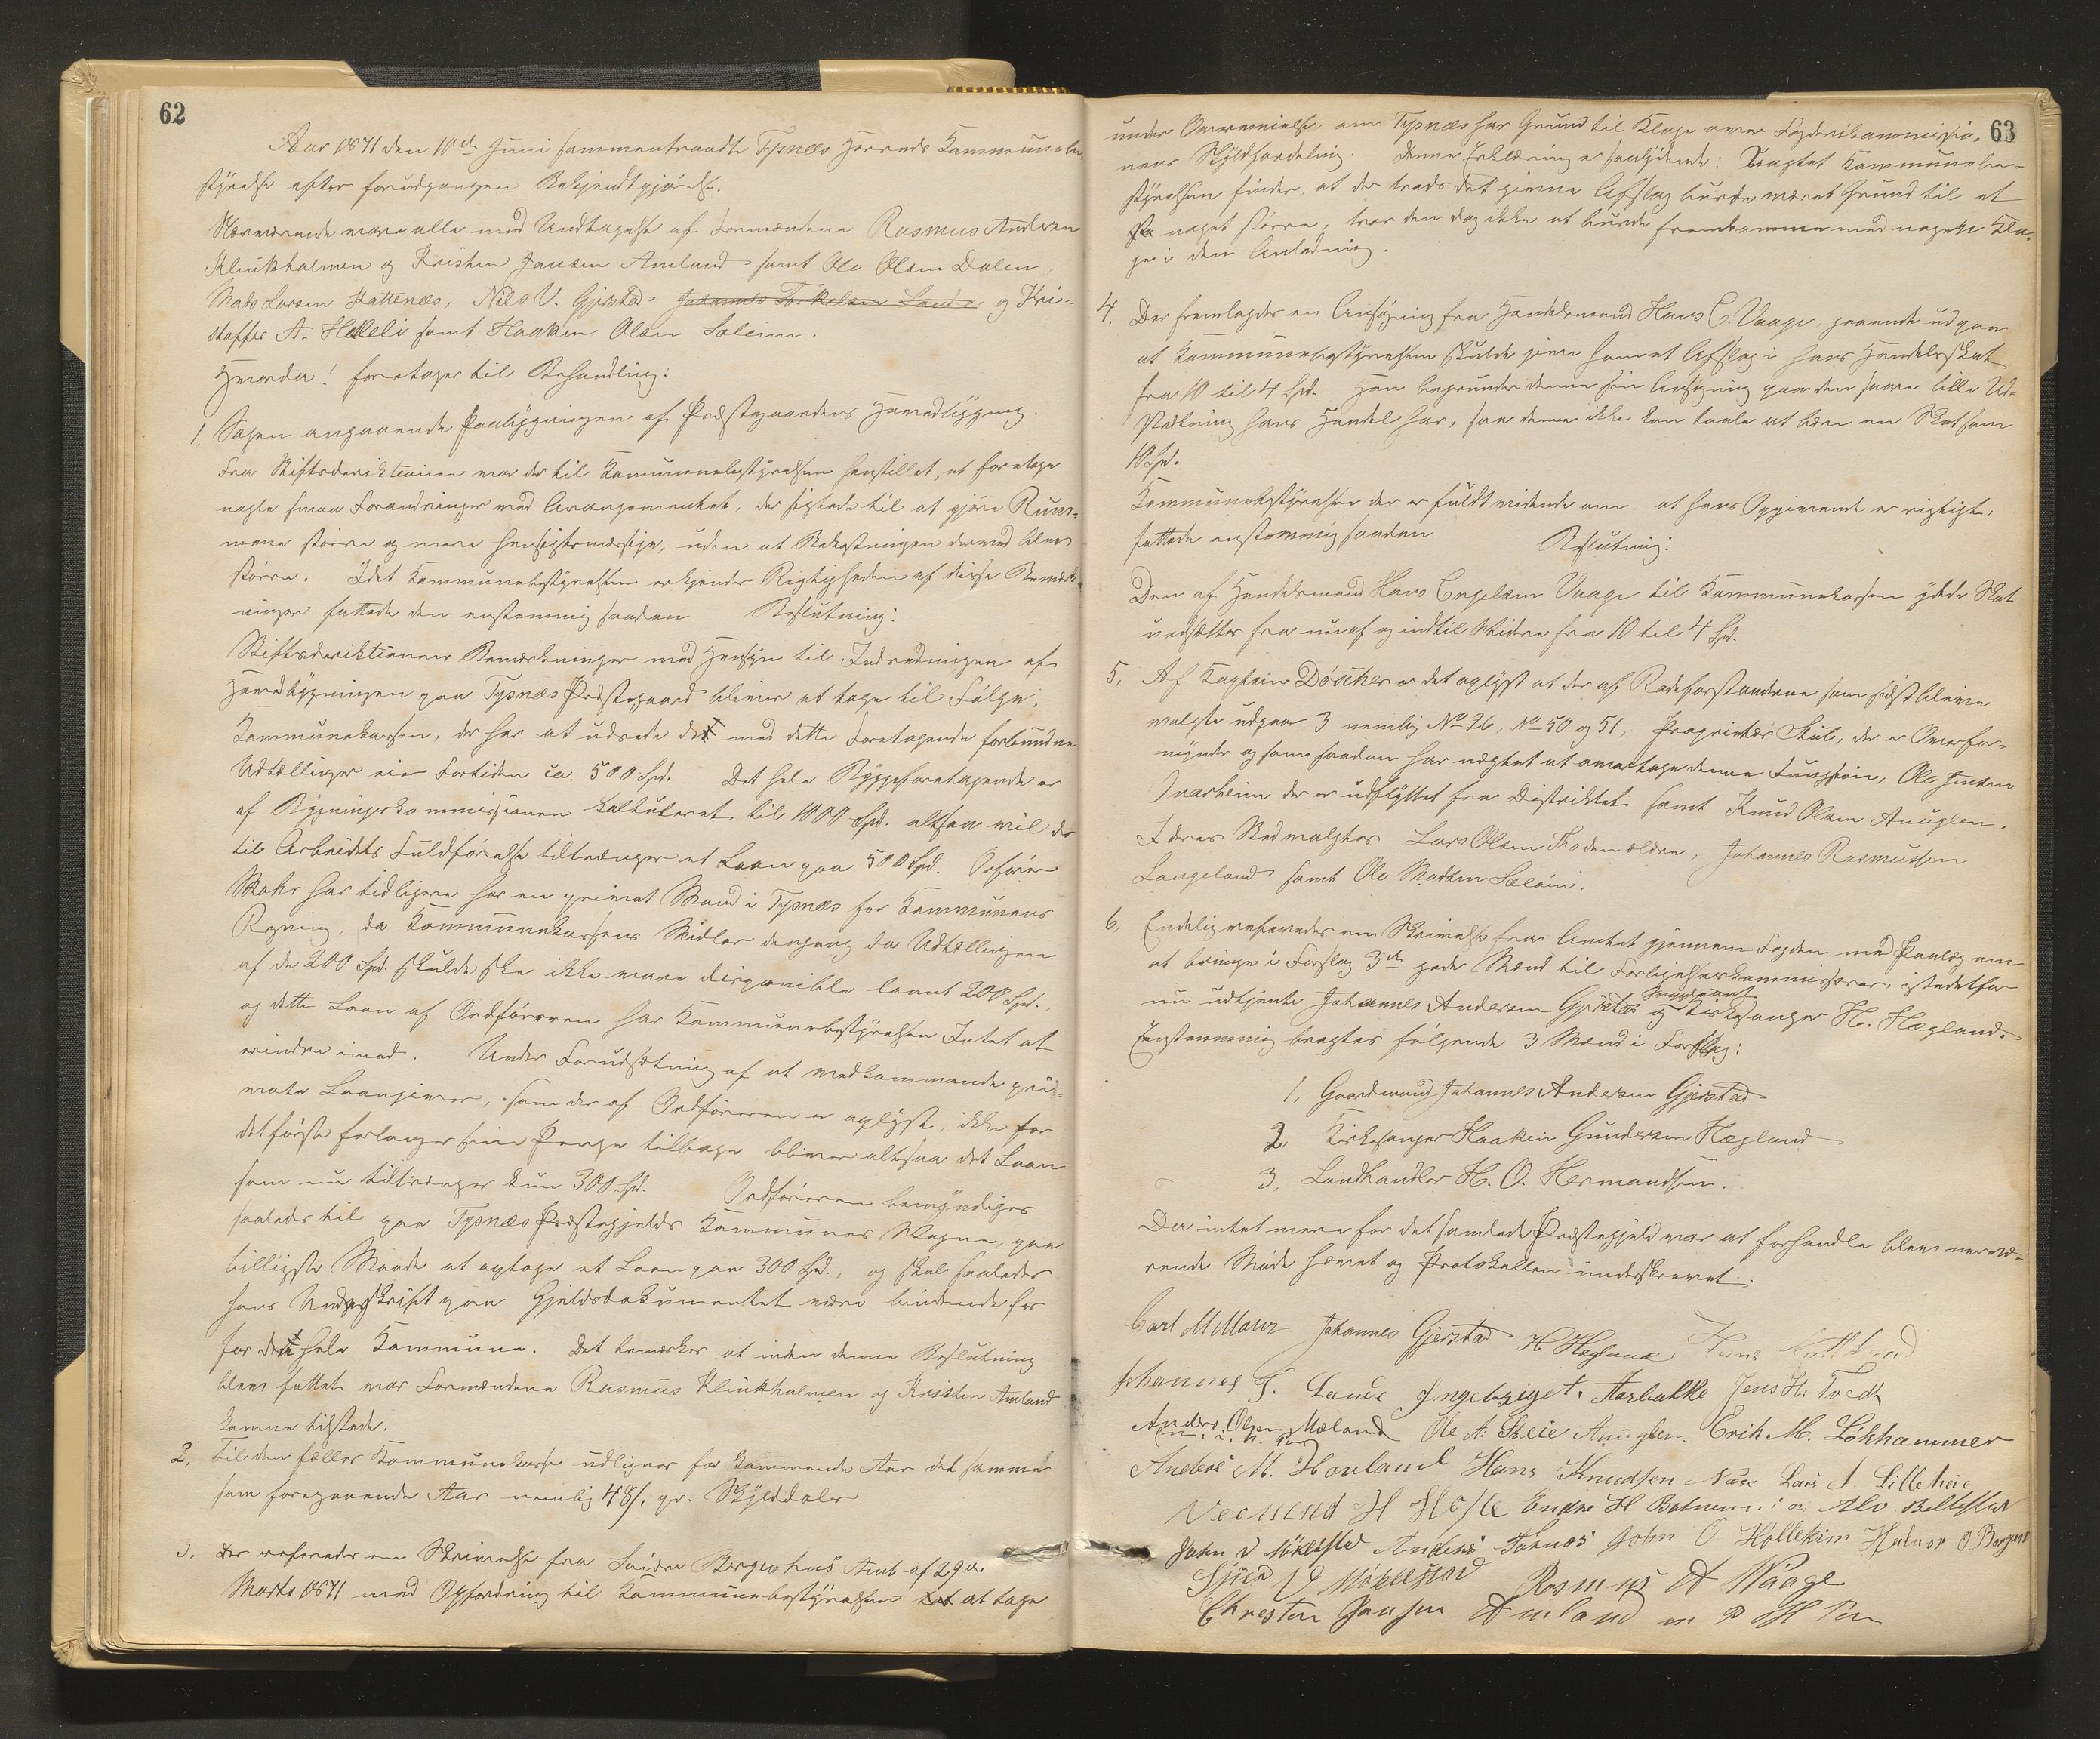 62
Aar 1871 den 10de Juni sammentraadte Tysnæs Herreds Kommunebe-
styrelse efter forudgangen Bekjendtgjørelse.
Nærværende vare alle med Undtagelse af Formændene Rasmus Andersen
Klinkholmen og Kristen Jansen Amland samt Ole Olsen Dalen,
Mads Larsen Hattenæs, Nils V. Gjerstad Johannes Torkelsen Lande og Kri-
stoffer A. Helleli samt Haaken Olsen Soleim.
Hvorda! foretages til Behandling:
1. Sagen angaaende Paabygningen af Præstegaardens Hovedbygning.
Fra Stiftsdirektionen var der til Kommunebestyrelsen henstillet, at foretage
nogle smaa Forandringer med Arrangementet, der sigtede til at gjøre Rum-
mene større og mere hensigtsmæssige, uden at Bekostningen dermed blev
større. Idet Kommunebestyrelsen erkjender Rigtigheden af disse Bemærk-
ninger fattede den enstemmig saadan Beslutning:
Stiftsdirektionens Bemærkninger med Hensyn til Indredningen af
Hovedbygningen paa Tysnæs Præstegaard bliver at tage til Følge.
Kommunekassen, der har at udrede de med dette Foretagende forbundne
Udtællinger eier Fortiden ca. 500 Spd. Det hele Byggeforetagende er
af Bygningskommissionen kalkuleret til 1000 Spd. altsaa vil der
til Arbeidets Fuldførelse tiltrænges et Laan paa 500 Spd. Ordfører
Mohr har tidligere hos en privat Mand i Tysnæs for Kommunens
Regning, da Kommunekassens Midler dengang da Udtællingen
af de 200 Spd. skulde ske ikke vare disponible laant 200 Spd.,
og dette Laan af Ordføreren har Kommunebestyrelsen Intet at
erindre imod. Under Forudsætning af at vedkommende pri-
vate Laangiver, som der af Ordføreren er oplyst, ikke for
det første forlanger sine Penge tilbage bliver altsaa det Laan
som nu tiltrænges kun 300 Spd. Ordføreren bemyndiges
saaledes til paa Tysnæs Præstegjelds Kommunes Vegne, paa
billigste Maade at optage et Laan paa 300 Spd., og skal saaledes
hans Underskrift paa Gjeldsdokumentet være bindende for
for den hele Kommune. Det bemærkes at inden denne Beslutning
blev fattet var Formændene Rasmus Klinkholmen og Kristen Amland
komne tilstede.
2. Til den fælles Kommunekasse udlignes for kommende Aar det samme
som foregaaende Aar nemlig 48 s. pr. Skylddaler
3. Der refererdes en Skrivelse fra Søndre Bergenhus Amt af 29de
Marts 1871 med Opfordring til Kommunebestyrelsen at tage
63
under Overveielse, om Tysnæs har Grund til Klage over Fogderikommissio-
nens Skyldfordeling. Denne Erklæring er saalydende: Uagtet Kommunebe-
styrelsen finder, at der trods det givne Afslag burde været Grund til at
faa noget større, tror den dog ikke at burde fremkomme med nogen Kla-
ge i den Anledning.
4. Der fremlagdes en Ansøgning fra Handelsmand Hans C. Vaage, gaaende ud paa
at Kommunebestyrelsen skulde give ham et Afslag i hans Handelsskat
fra 10 til 4 Spd. Han begrunder denne sin Ansøgning paa den saare lille Ud-
strækning hans Handel har, saa denne ikke kan taale at bære en Skat som
10 Spd.
Kommunebestyrelsen der er fuldt vidende om, at hans Opgivende er rigtigt,
fattede enstemmig saadan Beslutning:
Den af Handelsmand Hans Engelsen Vaage til Kommunekassen ydede Skat
nedsættes fra nu af og indtil Videre fra 10 til 4 Spd.
5. Af Kaptein Døscher er det oplyst at der af Rodeforstanderne som sidst bleve
valgte udgaar 3 nemlig No 26, No 50 og 51, Proprietær Stub, der er Overfor-
mynder og som saadan har nægtet at overtage denne Funktion, Ole Jensen
Ivarheim der er udflyttet fra Distriktet samt Knud Olsen Anuglen.
I deres Sted valgtes Lars Olsen Tho den ældre, Johannes Rasmussen
Langeland samt Ole Madsen Soleim.
6. Endelig refereredes en Skrivelse fra Amtet gjennem Fogden med Paalæg om
at bringe i Forslag 3de gode Mænd til Forligelseskommissærer, istedetfor
nu udtjente Johannes Andersen Gjerstad og Kirkesanger H. Hægland.
Enstemmig bragtes følgende 3 Mænd i Forslag:
1. Gaardmand Johannes Andersen Gjerstad
2. Kirkesanger Haakin Gundersen Hægland
3. Landhandler H. O. Hermandsen.
Da intet mere for det samlede Præstegjeld var at forhandle blev nærvæ-
rende Møde hævet og Protokollen underskrevet.
Carl M Mohr Johannes Gjerstad H Hægland
Johannes T. Lande Ingebrigt. Aarbakke Jens H: Tvedt
Anders Olsen Mæland Ole A: Skeie Anuglen. Erik M. Løkhammer
Anders M. Hovland Hans Knudsen Lars A Lilleskeie
Vermund H Hofle Endre H Botnen
John O Møklestad Anders John O Hollekim Halvor O
Sjur O Møklestad Rasmus A Waage
Christen Jansen Amland m P